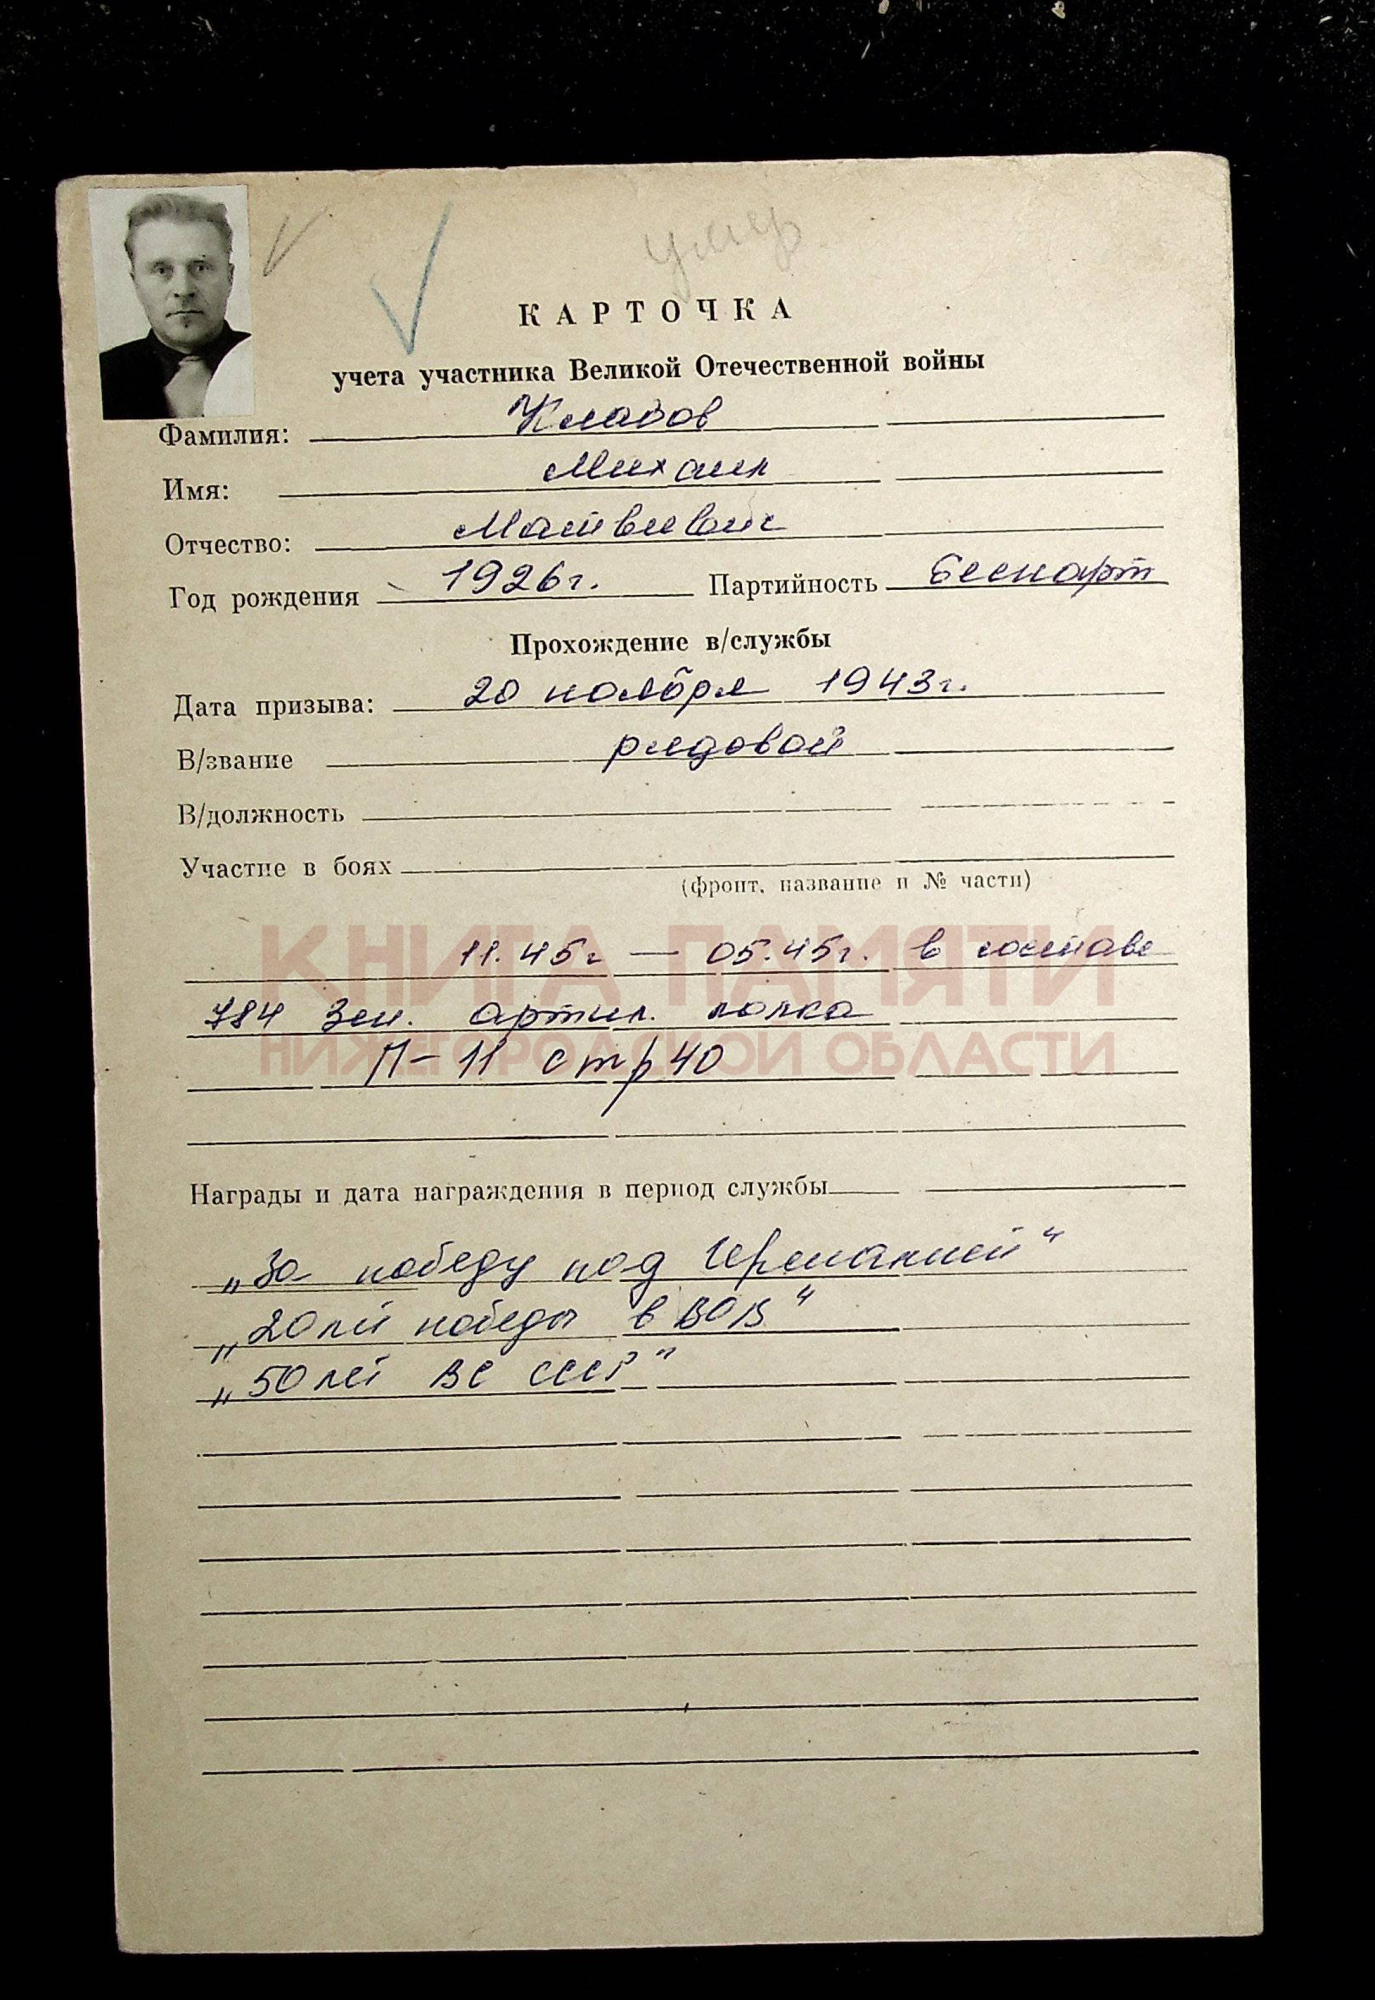 умер
КАРТОЧКА
учета участника Великой Отечественной войны
Фамилия: Кладов
Имя: Михаил
Отчество: Матвеевич
Год рождения 1926г. Партийность беспарт
Прохождение в/службы
Дата призыва: 20 ноября 1943г.
В/звание рядовой
В/должность
Участие в боях
(фронт, название и № части)
11.45г — 05.45г. в составе
784 Зен. артил. полка
П-11 стр 40
КНИГА ПАМЯТИ
НИЖЕГОРОДСКОЙ ОБЛАСТИ
Награды и дата награждения в период службы
„За победу над Германией"
„20 лет победы в ВОВ"
„50 лет ВС СССР"